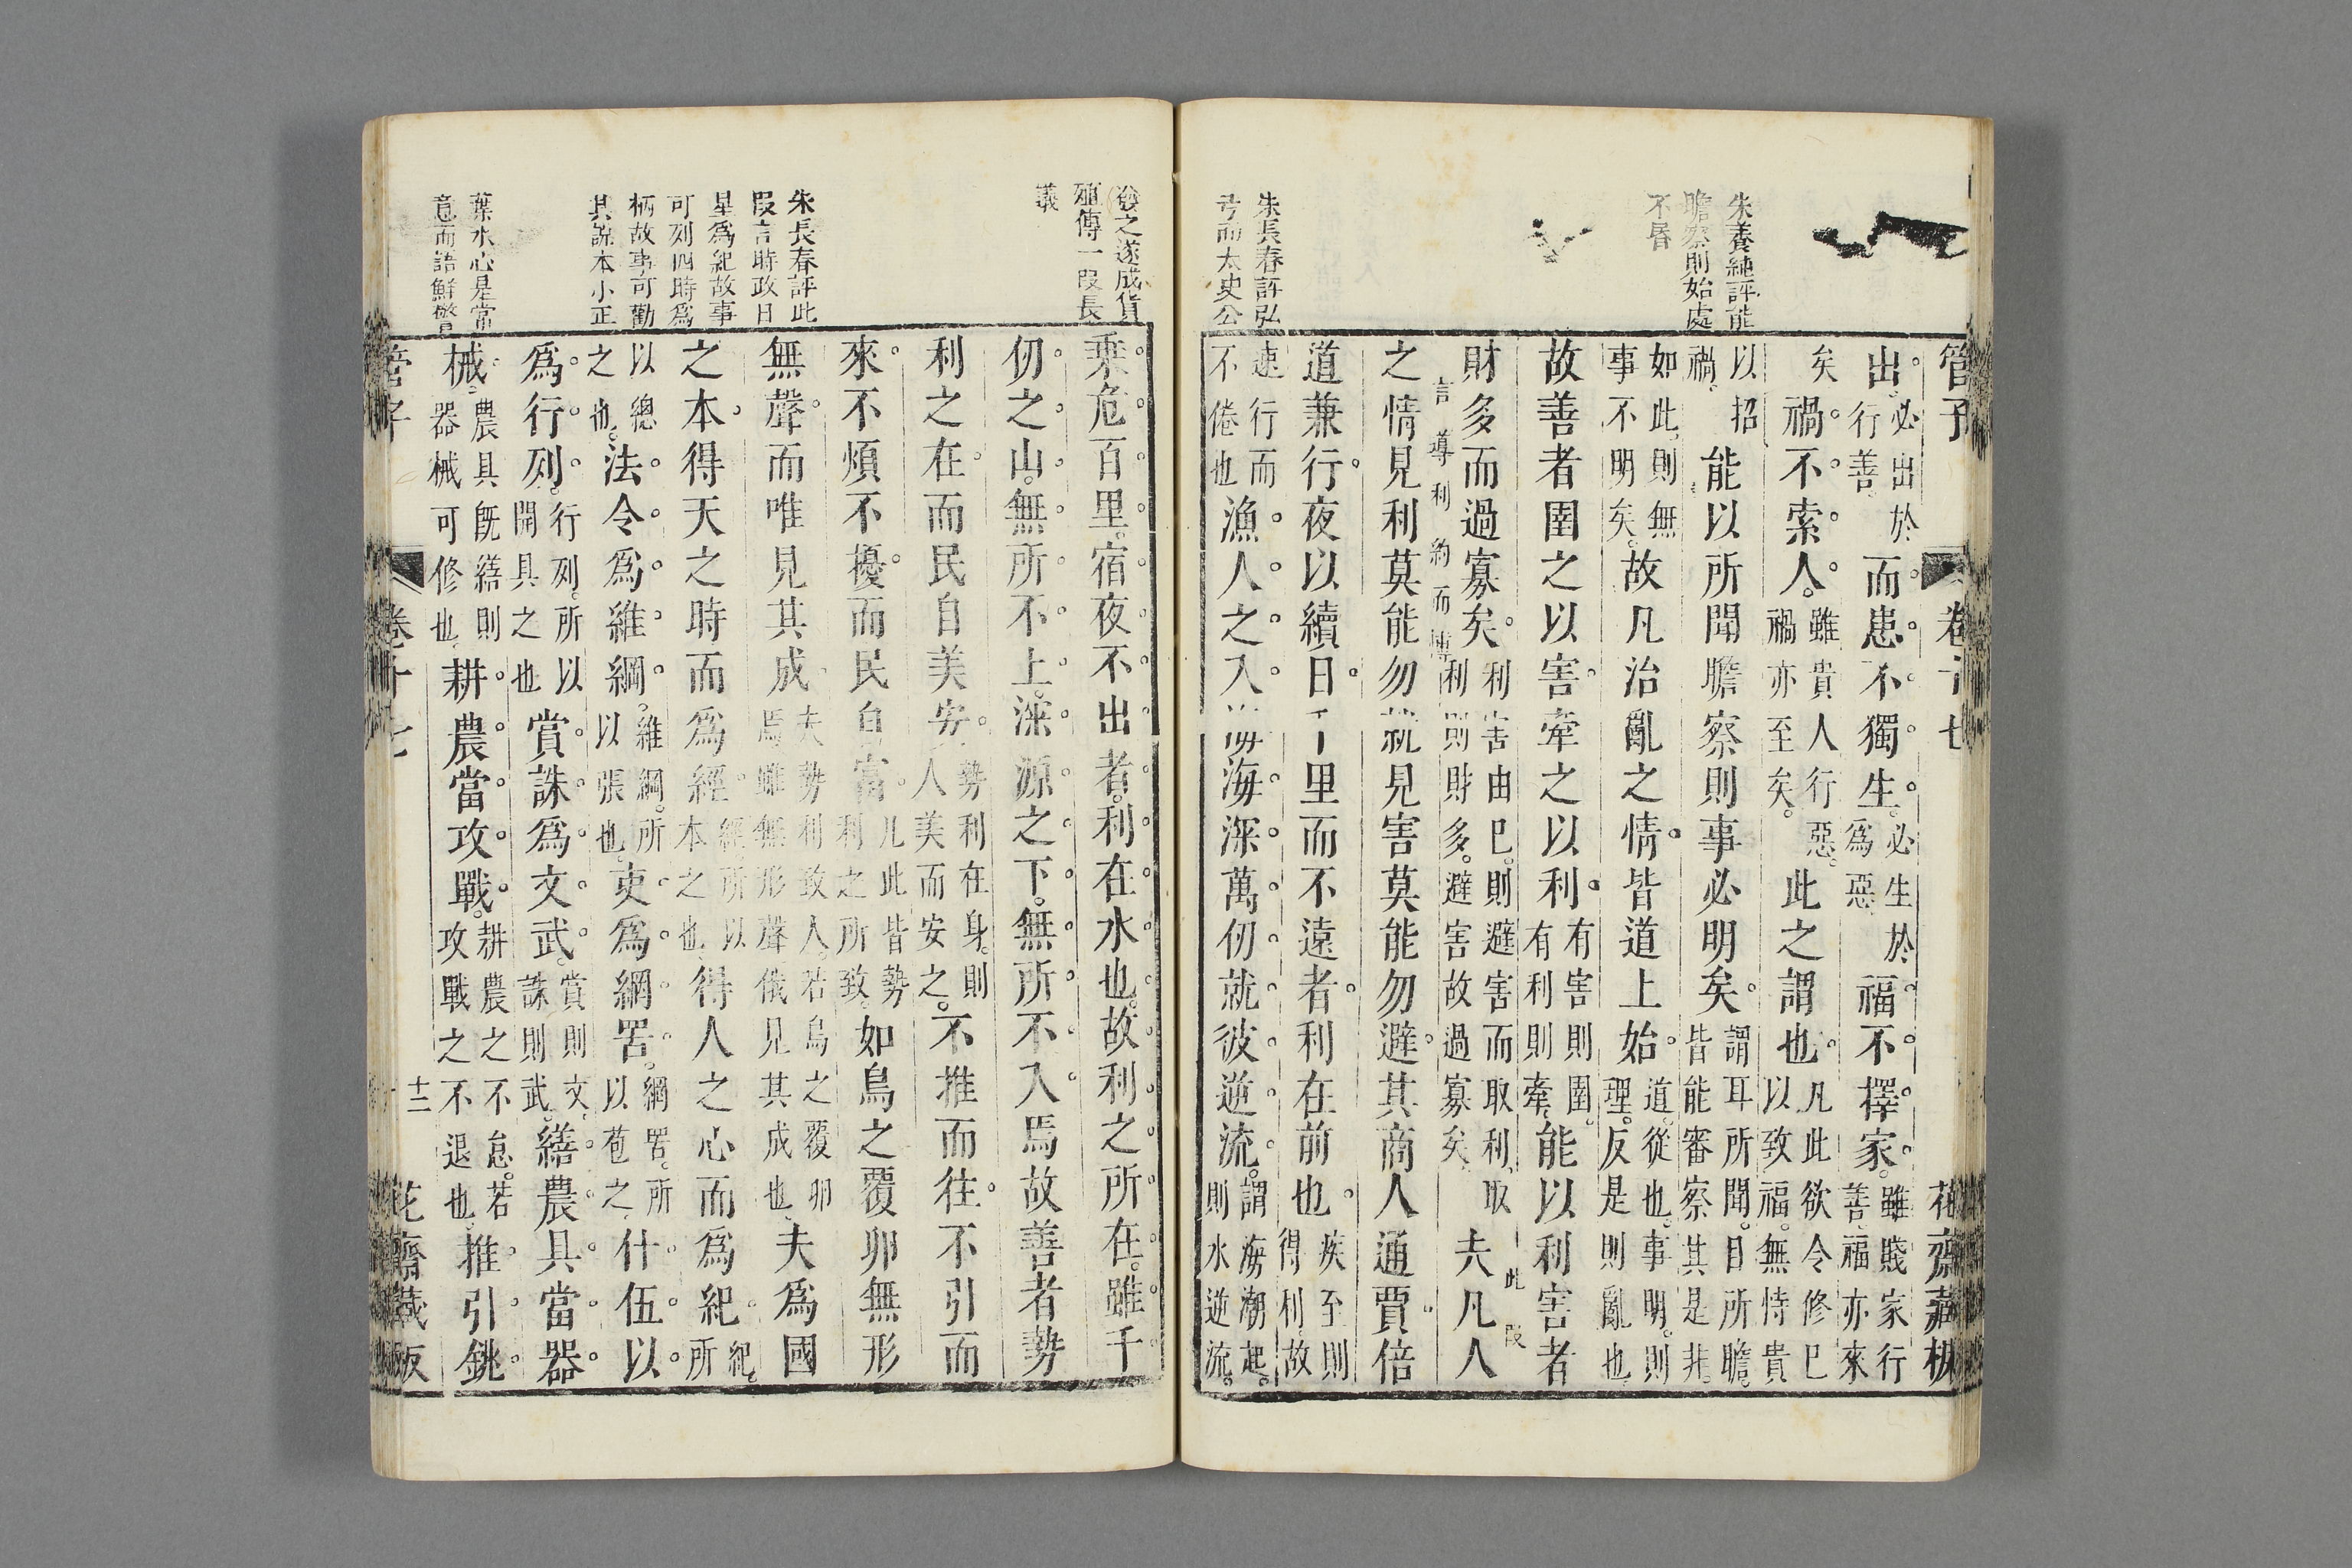 管子
卷十七
花齋藏板
朱養純評能
瞻察則始處
不昬
朱長春評弘
㢤而太史公
出必出於行善而患不獨生必生於爲惡福不擇家雖賤家行善福亦來
矣禍不索人雖貴人行惡禍亦至矣此之謂也凡此欲令修已以致福無恃貴
以招禍能以所聞瞻察則事必明矣謂耳所聞目所瞻皆能審察其是非
如此則無事不明矣故凡治亂之情皆道上始道從也事明則理反是則亂也
故善者圉之以害牽之以利有害則圉有利則牽能以利害者
財多而過寡矣利害由已則避害而取利取利則財多避害故過寡矣夫凡人
言導利約而博
此段
之情見利莫能勿就見害莫能勿避其商人通賈倍
道兼行夜以續日千里而不遠者利在前也疾至則得利故
速行而不倦也漁人之入海海深萬仞就彼逆流謂海潮起則水逆流
後之遂成貨
殖傳一段長
議
朱長春評此
段言時政日
星爲紀故事
可列四時爲
柄故事可勸
其說本小正
葉水心是常
意而語鮮警
乘危百里宿夜不出者利在水也故利之所在雖千
仞之山無所不上深源之下無所不入焉故善者勢
利之在而民自美安勢利在身則人美而安之不推而往不引而
來不煩不擾而民自富凡此皆勢利之所致如鳥之覆卵無形
無聲而唯見其成夫勢利致人若鳥之覆卵焉雖無形聲俄見其成也夫爲國
之本得天之時而爲經經所以本之也得人之心而爲紀紀所
以總之也法令爲維綱維綱所以張也吏爲網罟網罟所以苞之什伍以
爲行列行列所以開具之也賞誅爲文武賞則文誅則武繕農具當器
械農具旣繕則器械可修也耕農當攻戰耕農之不怠若攻戰之不退也推引銚
管子
卷十七
十三
花齋藏板